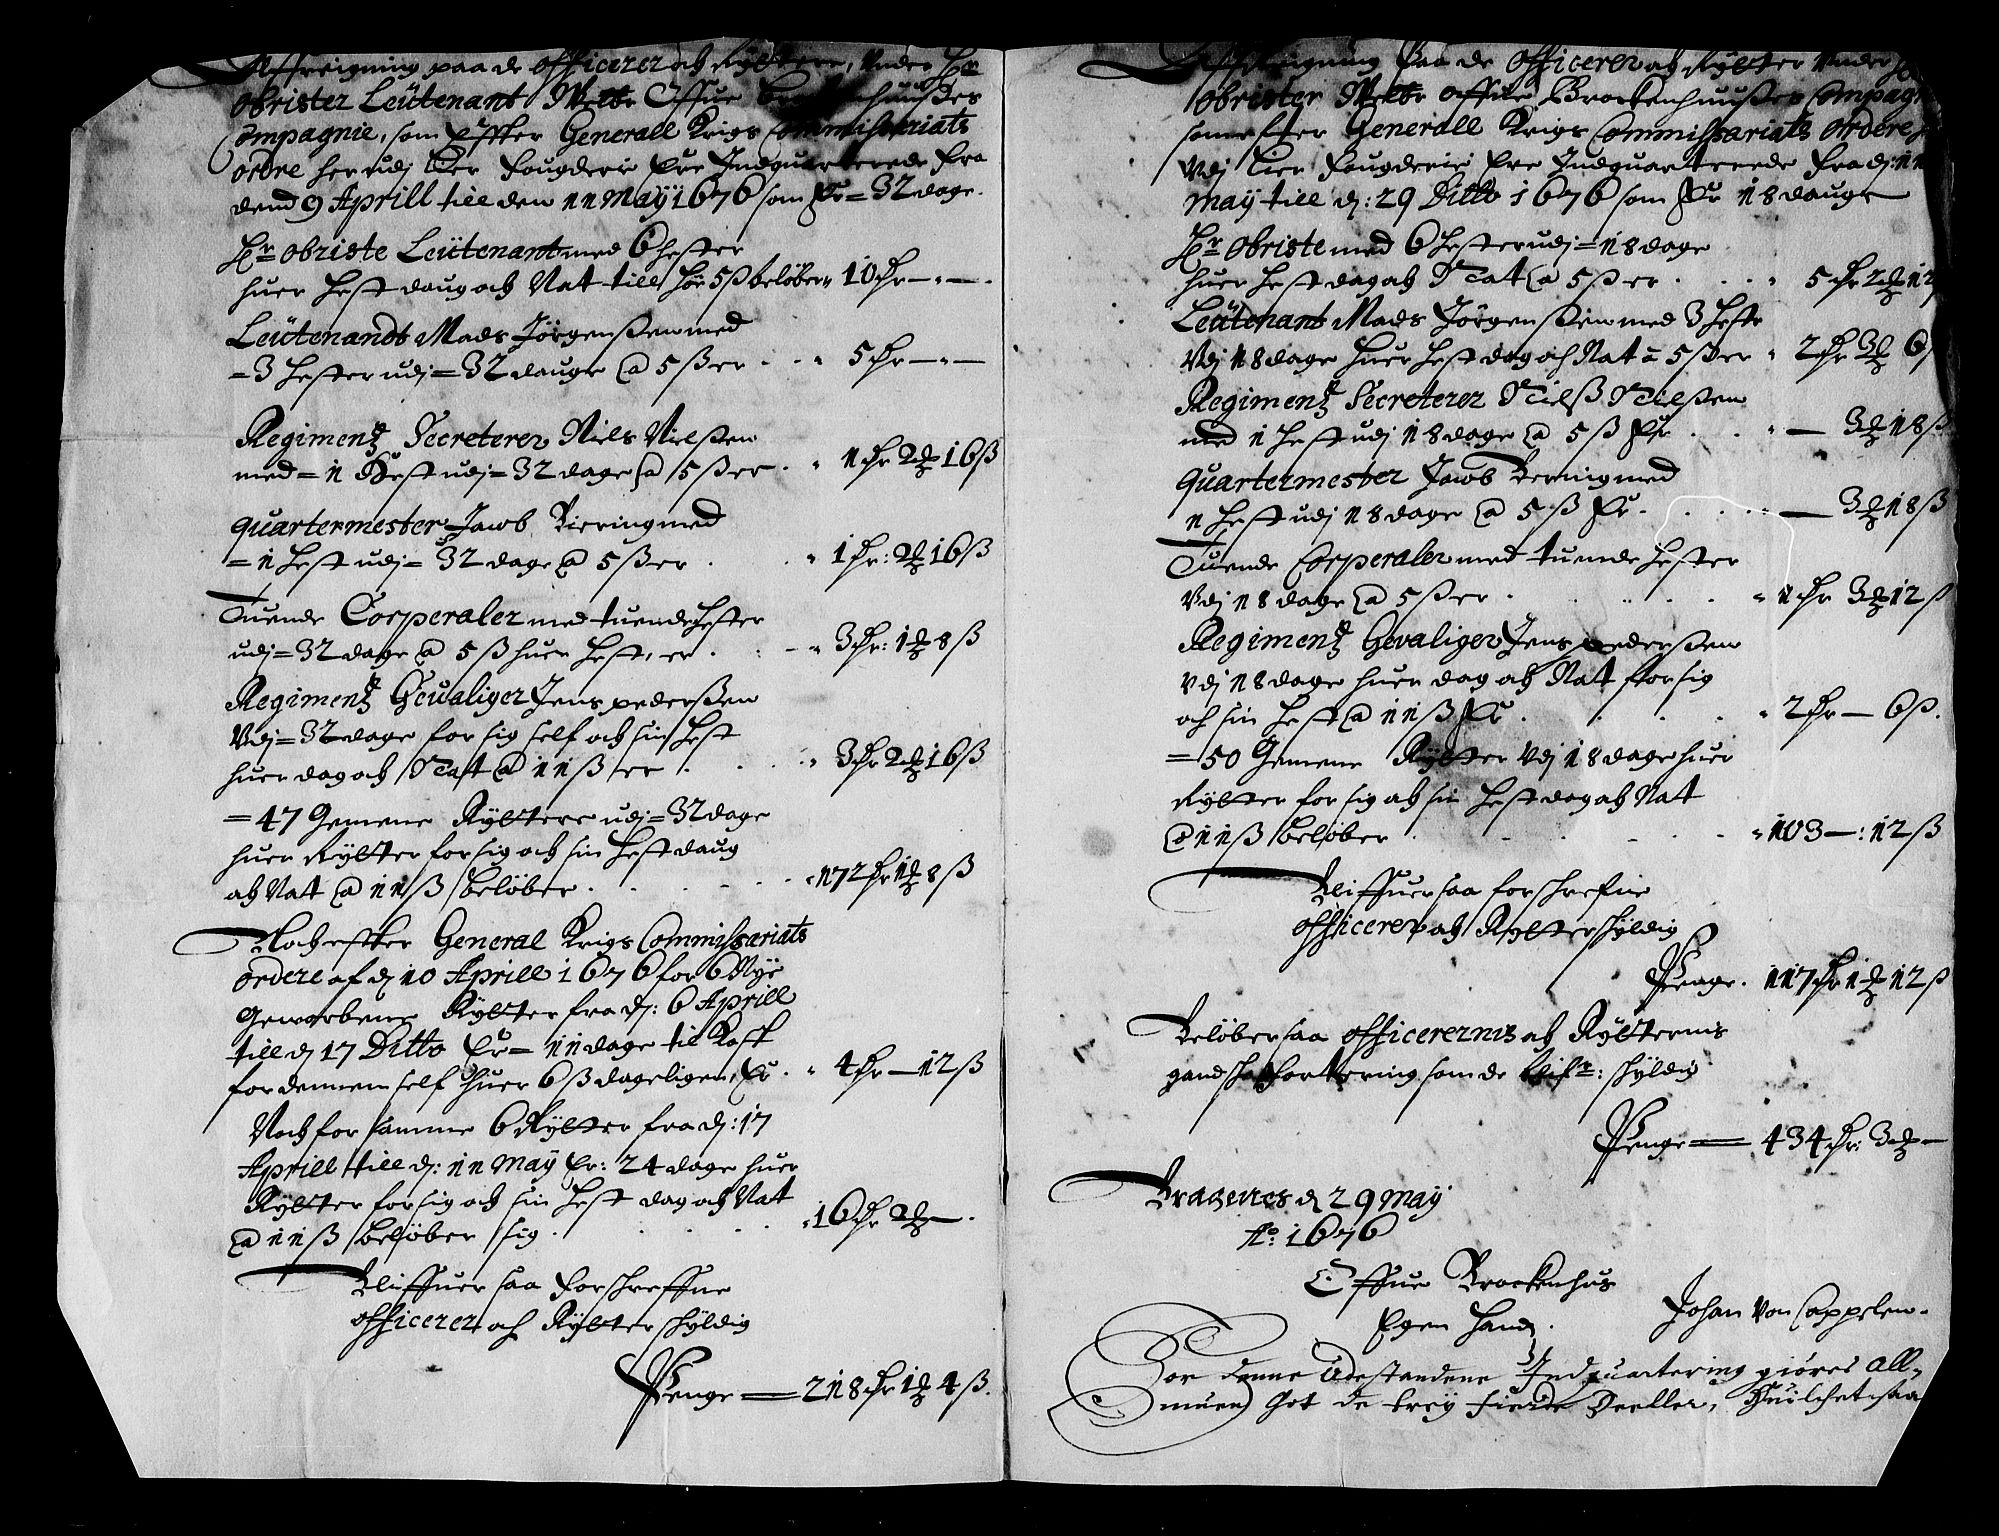 Affreigning paa de officerer och Ryttere, under Hr
obrister Leütenant Welbr Offue Brockenhuußes
Compagnie, som effter Generall Krigs Commissariats
ordre her udj Lier Fougderie Ere Indquarterede fra
dend 9 Aprill till den 11 Maÿ 1676 som Er = 32 dage.
Hr obriste Leütenant med 6 hester
huer hest daug och Nat till Høe 5 ß beløber " 10 dr — " — .
Leütenandt Mads Jörgenßen med
= 3 hester udj = 32 dauge @ 5 ß er . . " 5 dr — " —
Regimentz Secreterer Niels Nielßen
med = 1 Hest udj = 32 dage @ 5 ß er . " 1 dr 2 ℔ 16 ß
quartermester Jacob Biering med
= 1 hest udj = 32 dage @ 5 ß er . . " 1 dr: 2 ℔ 16 ß
Tuende Corperaler med tuende hester
udj = 32 dage @ 5 ß huer hest, er . . - " 3 dr: 1 ℔ 8 ß
Regimentz Gewaliger Jens pederßen
Vdj = 32 dage for sig self och sin hest
huer dag och Natt @ 11 ß er . . . " 3 dr 2 ℔ 16 ß
= 47 Gemene Rÿttere udj = 32 dage
huer Rÿtter for sig och sin hest daug
och Nat @ 11 ß beløber . . . . " 172 dr 1 ℔ 8 ß
Noch effter General Krigs Commissariats
ordere af d 10 Aprill 1676 for 6 Nÿe
Geworbene Rÿtter fra d: 6 Aprill
till d 17 Ditto Er = 11 dage til Kost
for dennem self huer 6 ß dageligen, Er . " 4 dr — 12 ß
Noch for samme 6 Rÿtter fra d: 17
Aprill till d: 11 Maÿ Er: 24 dage huer
Rÿtter for sig och sin hest dag och Nat
@ 11 ß beløber sig . . . . " 16 dr 2 ℔ — .
Bliffuer saa forschreffne
officerer och Rÿtter schÿldig
Penge — 218 dr 1 ℔ 4 ß .
Affreigning Paa de officerer och Rÿtter Under
obrister Welbr offue Brockenhuußes Compagni
som effter Generall Krigs Commissariats ordere
Vdj Lier Fougderie Ere Indquarterede fra d: 11
Maÿ till d: 29 Ditto 1676 som Er 18 dauge
Hr obriste med 6 hester udj = 18 dage
huer hest dag och Nat @ 5 ß er . . . " 5 dr 2 ℔ 12
Leütenant Mads Jörgenßen med 3 heste
Vdj 18 dage huer hest dag och Nat a 5 ß er " 2 dr 3 ℔ 6
Regimentz Secreterer Nielß Nielßen
med 1 hest udj 18 dage @ 5 ß Er . . " — 3 ℔ 18 ß
quartermester Jacob Bering med
1 hest udj 18 dage @ 5 ß Er . . . " — 3 ℔ 18 ß
Tuende Corperaler med tuende hester
Vdj 18 dage @ 5 ß er . . . . " 1 dr 3 ℔ 12 ß
Regimentz Gewaliger Jens pederßen
Vdj 18 dage huer dag och Nat for sig
och sin hest @ 11 ß Er . . . . " 2 dr — 6 ß.
= 50 Gemene Rÿtter Vdj 18 dage huer
Rÿtter for sig och sin hest dag och Nat
@ 11 ß beløber . . . . " 103 — : 12 ß
Bliffuer saa forschrefne
officerer och Rÿtter schÿldig
Penge . 117 dr 1 ℔ 12 ß
Beløber saa officerernis och Rÿtternis
gandsche fortering som de blifr: schÿldig
Penge — 434 dr: 3 ℔ —
Bragernes d 29 Maÿ
Ao: 1676
Offue Brockenhus
Egen Hand.
Johan Von Cappelen.
For denne Udestandene Indquartering giøres All-
muen Got de trey fierde Deeller, Huilchet saa